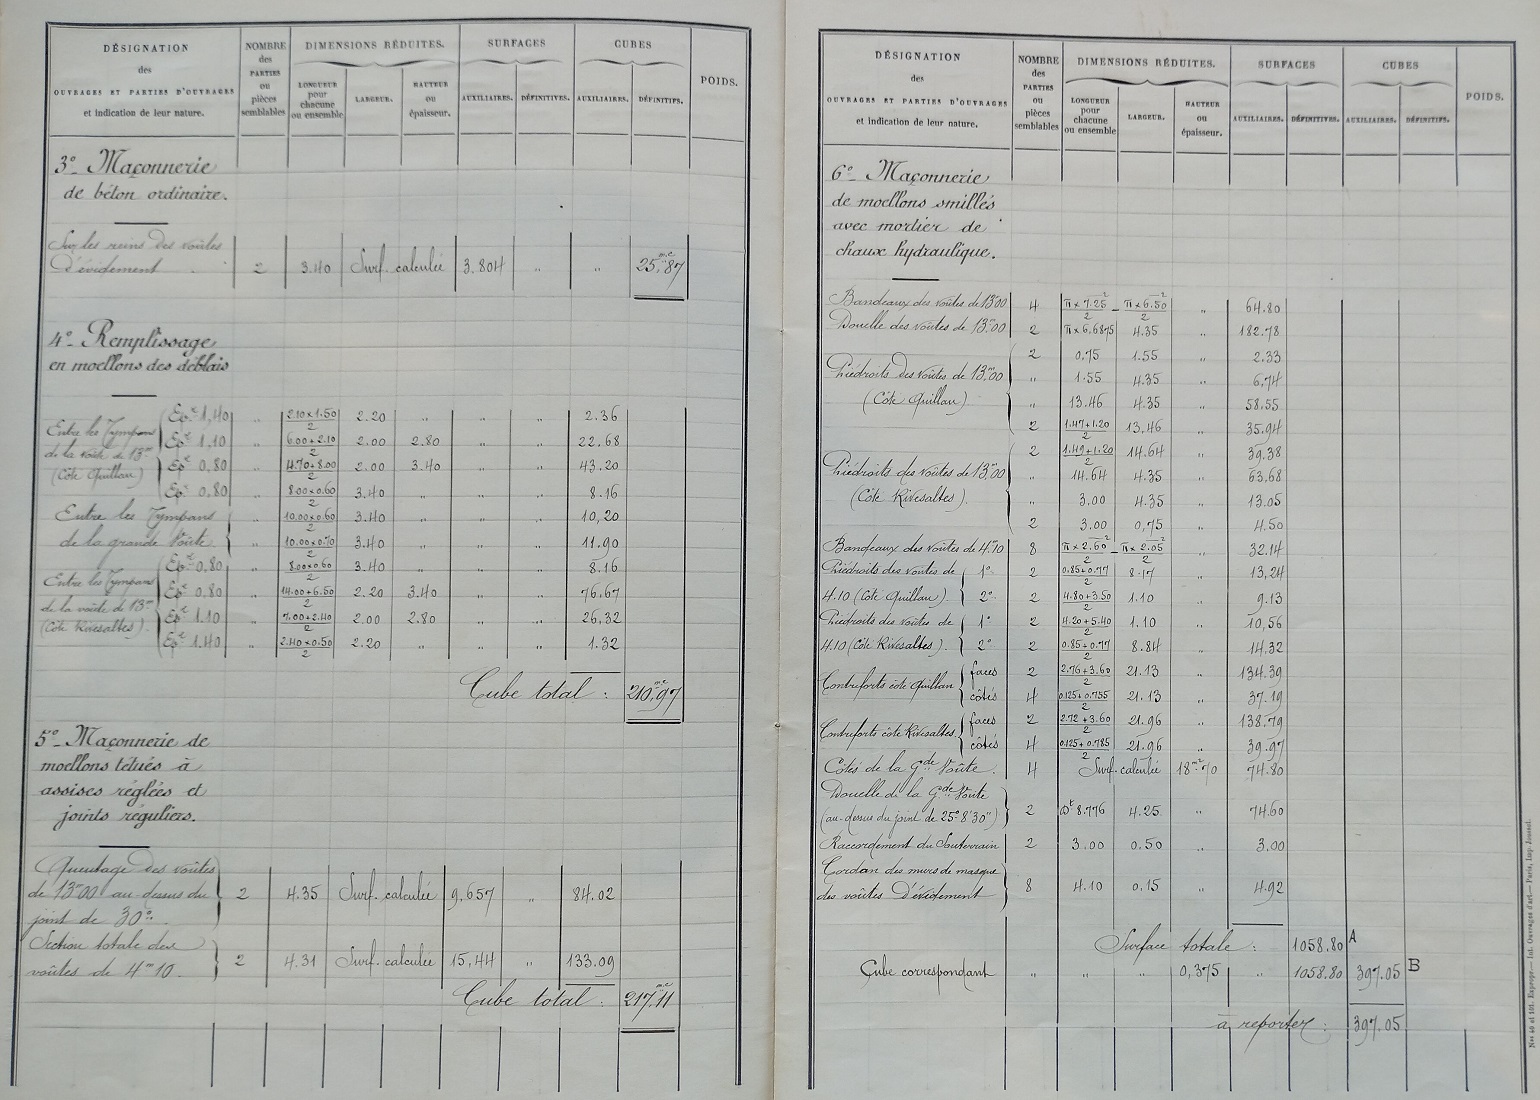 DÉSIGNATION
des
OUVRAGES ET PARTIES D'OUVRAGES
et indication de leur nature.
NOMBRE
des
PARTIES
ou
pièces
semblables
DIMENSIONS RÉDUITES.
LONGUEUR
pour
chacune
ou ensemble
LARGEUR.
HAUTEUR
ou
épaisseur.
SURFACES
AUXILIAIRES.
DÉFINITIVES.
CUBES
AUXILIAIRES.
DÉFINITIFS.
POIDS.
3º_ Maçonnerie
de béton ordinaire.
Sur les reins des voûtes
d'évidement 2 3.40 Surf. calculée 3.804 " " 25.mc87
4º_ Remplissage
en moellons des déblais
Entre les Tympans
de la voûte de 13m
(Côté Quillan)
Epr 1,40 " 2.10x1.50/2 2.20 " " " 2.36
Epr 1,10 " 6.00+2.10/2 2.00 2.80 " " 22.68
Epr 0,80 " 4.70+8.00/2 2.00 3.40 " " 43.20
Epr 0.80 " 8.00x0.60/2 3.40 " " " 8.16
Entre les Tympans " 10.00x0.60/2 3.40 " " " 10,20
de la grande Voûte " 10.00x0.70/2 3.40 " " " 11.90
Entre les Tympans
de la voûte de 13m
(Côté Rivesaltes).
Epr 0,80 " 8.00x0.60/2 3.40 " " " 8.16
Epr 0.80 " 14.00+6.50/2 2.20 3.40 " " 76.67
Epr 1.10 " 7.00+2.40/2 2.00 2.80 " " 26,32
Epr 1.40 " 2.40x0.50/2 2.20 " " " 1.32
Cube total : 210.mc97
5º_ Maçonnerie de
moellons têtués à
assises réglées et
joints réguliers.
Queutage des voûtes
de 13m00 au-dessus du 2 4.35 Surf. calculée 9,657 " 84.02
joint de 30º.
Section totale des
voûtes de 4m10 2 4.31 Surf. calculée 15,44 " 133.09
Cube total : 217.mc11
DÉSIGNATION
des
OUVRAGES ET PARTIES D'OUVRAGES
et indication de leur nature.
NOMBRE
des
PARTIES
ou
pièces
semblables
DIMENSIONS RÉDUITES.
LONGUEUR
pour
chacune
ou ensemble
LARGEUR.
HAUTEUR
ou
épaisseur.
SURFACES
AUXILIAIRES.
DÉFINITIVES.
CUBES
AUXILIAIRES.
DÉFINITIFS.
POIDS.
6º_ Maçonnerie
de moellons smillés
avec mortier de
chaux hydraulique.
Bandeaux des voûtes de 13m00 4 π x 7.25²/2 - π x 6.50²/2 " 64.80
Douelle des voûtes de 13m00 2 π x 6.6875 4.35 " 182.78
Piédroits des voûtes de 13m00
(Côté Quillan)
2 0,75 1.55 " 2.33
" 1.55 4.35 " 6,74
" 13.46 4.35 " 58.55
2 1.47+1.20/2 13,46 " 35.94
Piédroits des voûtes de 13m00
(Côté Rivesaltes).
2 1.49+1.20/2 14.64 " 39.38
" 14.64 4.35 " 63.68
" 3.00 4.35 " 13.05
2 3.00 0,75 " 4.50
Bandeaux des voûtes de 4m10 8 π x 2.60²/2 - π x 2.05²/2 " 32.14
Piédroits des voûtes de 1º 2 0.85+0.77/2 8.17 " 13,24
4.10 (Côté Quillan). 2º 2 4.80+3.50/2 1.10 " 9.13
Piédroits des voûtes de 1º 2 4.20+5.40/2 1.10 " 10,56
4.10 (Côté Rivesaltes). 2º 2 0.85+0.77/2 8.84 " 14.32
Contreforts côté Quillan
faces 2 2.76+3.60/2 21.13 " 134.39
côtés 4 0.125+0.755/2 21.13 " 37.19
Contreforts côté Rivesaltes
faces 2 2.72+3.60/2 21.96 " 138.79
côtés 4 0.125+0.785/2 21.96 " 39.97
Côtés de la Gde Voûte. 4 Surf. calculée 18m²70 74.80
Douelle de la Gde Voûte
(au-dessus du joint de 25º8'30") 2 Dt 8.776 4.25 " 74.60
Raccordement du Souterrain 2 3.00 0.50 " 3,00
Cordon des murs de masque
des voûtes d'évidement 8 4.10 0,15 " 4.92
Surface totale : 1058.80 A
Cube correspondant " " " 0,375 " 1058.80 397.05 B
à reporter : 397.05